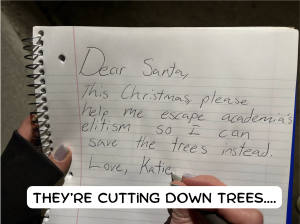 Dear Santa,
This Christmas, please
help me escape academia's
elitism so I can
save the trees instead.
Love, Katie
THEY'RE CUTTING DOWN TREES....